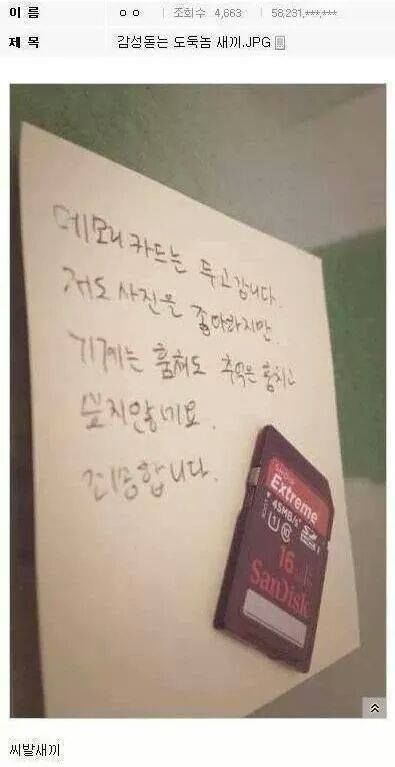 이 름 ㅇㅇ | 조회수 4,663 | 58,231,***,***
제 목 감성돋는 도둑놈 새끼.JPG
메모리카드는 두고갑니다.
저도 사진을 좋아하지만
기계는 훔쳐도 추억은 훔치고
싶지않네요.
죄송합니다.
SanDisk
Extreme
45MB/s
1 10
16
SanDisk
씨발새끼